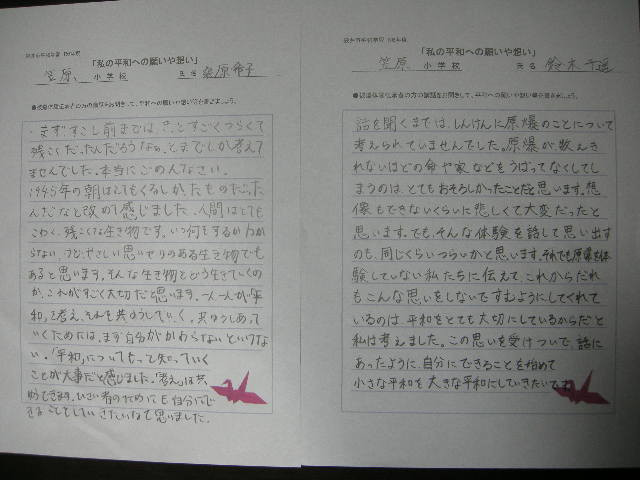 「私の平和への願いや想い」
笠原 小学校 氏名 桑原希子
まずすこし前までは、きっとすごくつらくて
残こくだったんだろうなぁ、とまでしか考えて
ませんでした。本当にごめんなさい。
1945年の朝はとてもくるしかったものだった
んだなと改めて感じました。人間はとても
こわく、残こくな生き物です。いつ何をするかわか
らない、つど、やさしい思いやりのある生き物でも
あると思います。そんな生き物とどう生きていくの
か、これがすごく大切だと思います。一人一人が「平
和」を考え、それを共ゆうしていく。共ゆうしあって
いくためには、まず自分がかわらないといけな
い。「平和」についてもっと知っていく
ことが大事だと感じました。「考え」は共
ゆうできます。
「私の平和への願いや想い」
笠原 小学校 氏名 鈴木千遥
話を聞くまでは、しんけんに原爆のことについて
考えられていませんでした。原爆が数えき
れないほどの命や家などをうばってなくしてし
まうのは、とてもおそろしかったことだと思います。想
像もできないくらいに悲しくて大変だったと
思います。でも、そんな体験を話して思い出す
のも、同じくらいつらいかと思います。それでも原爆を体
験していない私たちに伝えて、これからだれ
もこんな思いをしないですむようにしてくれて
いるのは、平和をとても大切にしているからだと
私は考えました。この思いを受けついで、話に
あったように、自分にできることを始めて
小さな平和を大きな平和にしていきたいです。